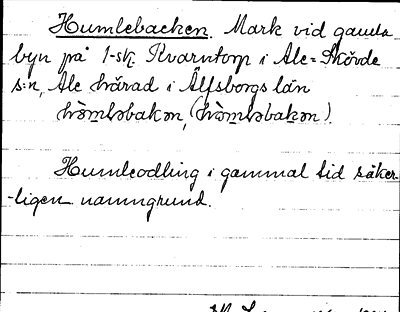 Humlebacken. Mark vid gamla
byn på 1-sk. Kvarntorp i Ale-Skövde
s:n, Ale härad i Älfsborgs län
hòmləbakən, (hòmləbakən).
Humleodling i gammal tid säker-
ligen namngrund.